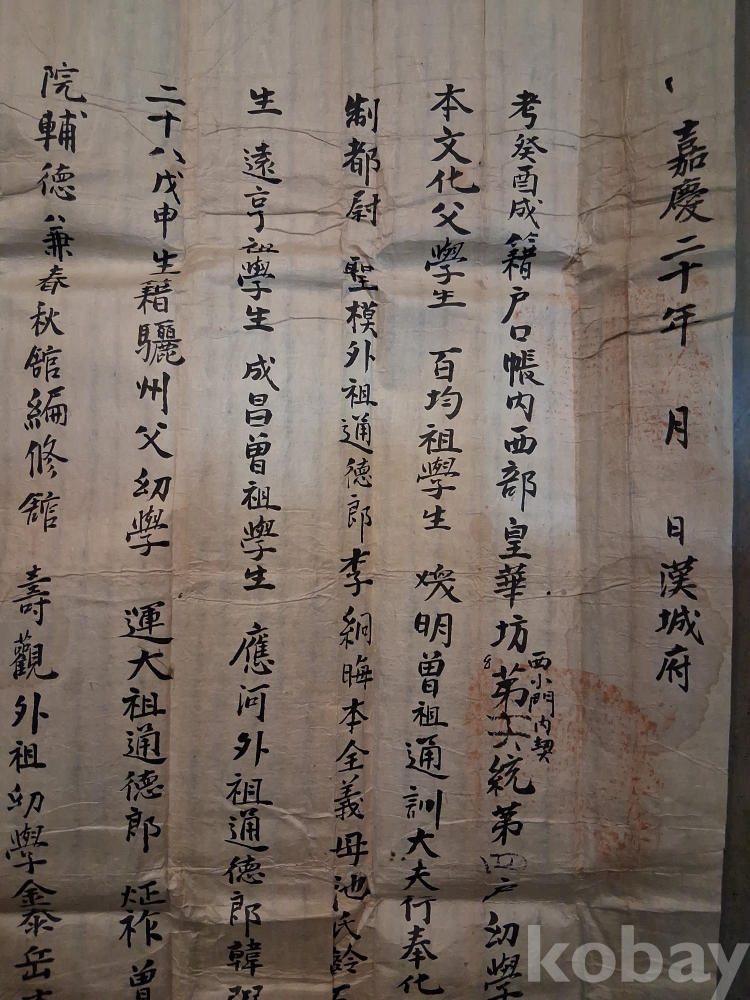 嘉慶二十年 月 日漢城府
考癸酉成籍户口帳內西部皇華坊第六統第四户幼學
西小門內契
本文化父學生 百均祖學生 明曾祖通訓大夫行奉化
制都尉 聖模外祖通德郎李絅晦本全義母池氏齡五
生 遠亨祖學生 成昌曾祖學生 應河外祖通德郎韓
二十八戊申生籍驪州父幼學 運大祖通德郎 祚曾
院輔德兼春秋館編修館 壽觀外祖幼學金泰岳本
kobay